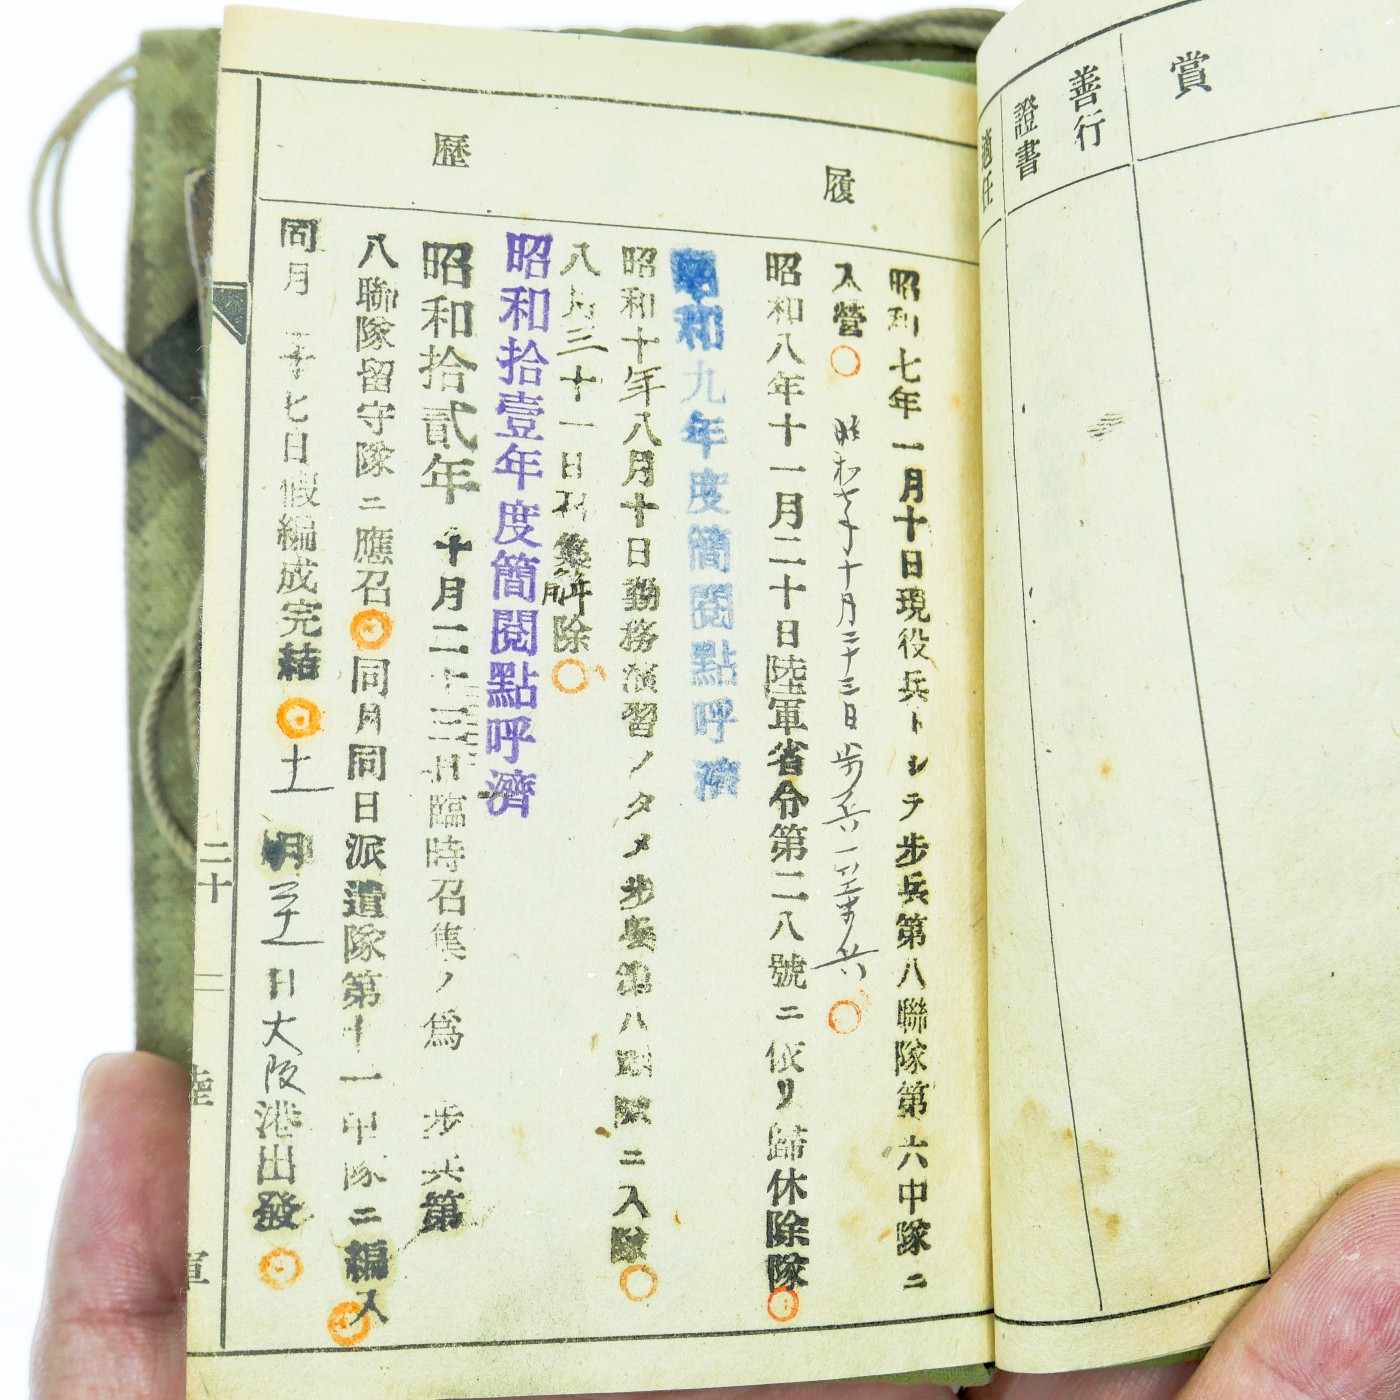 賞
善行
證書
適任
履歷
昭和七年一月十日現役兵トシテ步兵第八聯隊第六中隊ニ
入營
十月三十三日步兵一等兵
昭和八年十一月二十日陸軍省令第二八號ニ依リ歸休除隊
昭和九年度簡閱點呼濟
昭和十年八月十日勤務演習ノタメ步兵第八聯隊ニ入隊
八月三十一日召集解除
昭和拾壹年度簡閱點呼濟
昭和拾貳年十月二十三日臨時召集ノ爲步兵第
八聯隊留守隊ニ應召同月同日派遣隊第十一中隊ニ編入
同月二十七日假編成完結十一月日大阪港出發
二十
陸軍